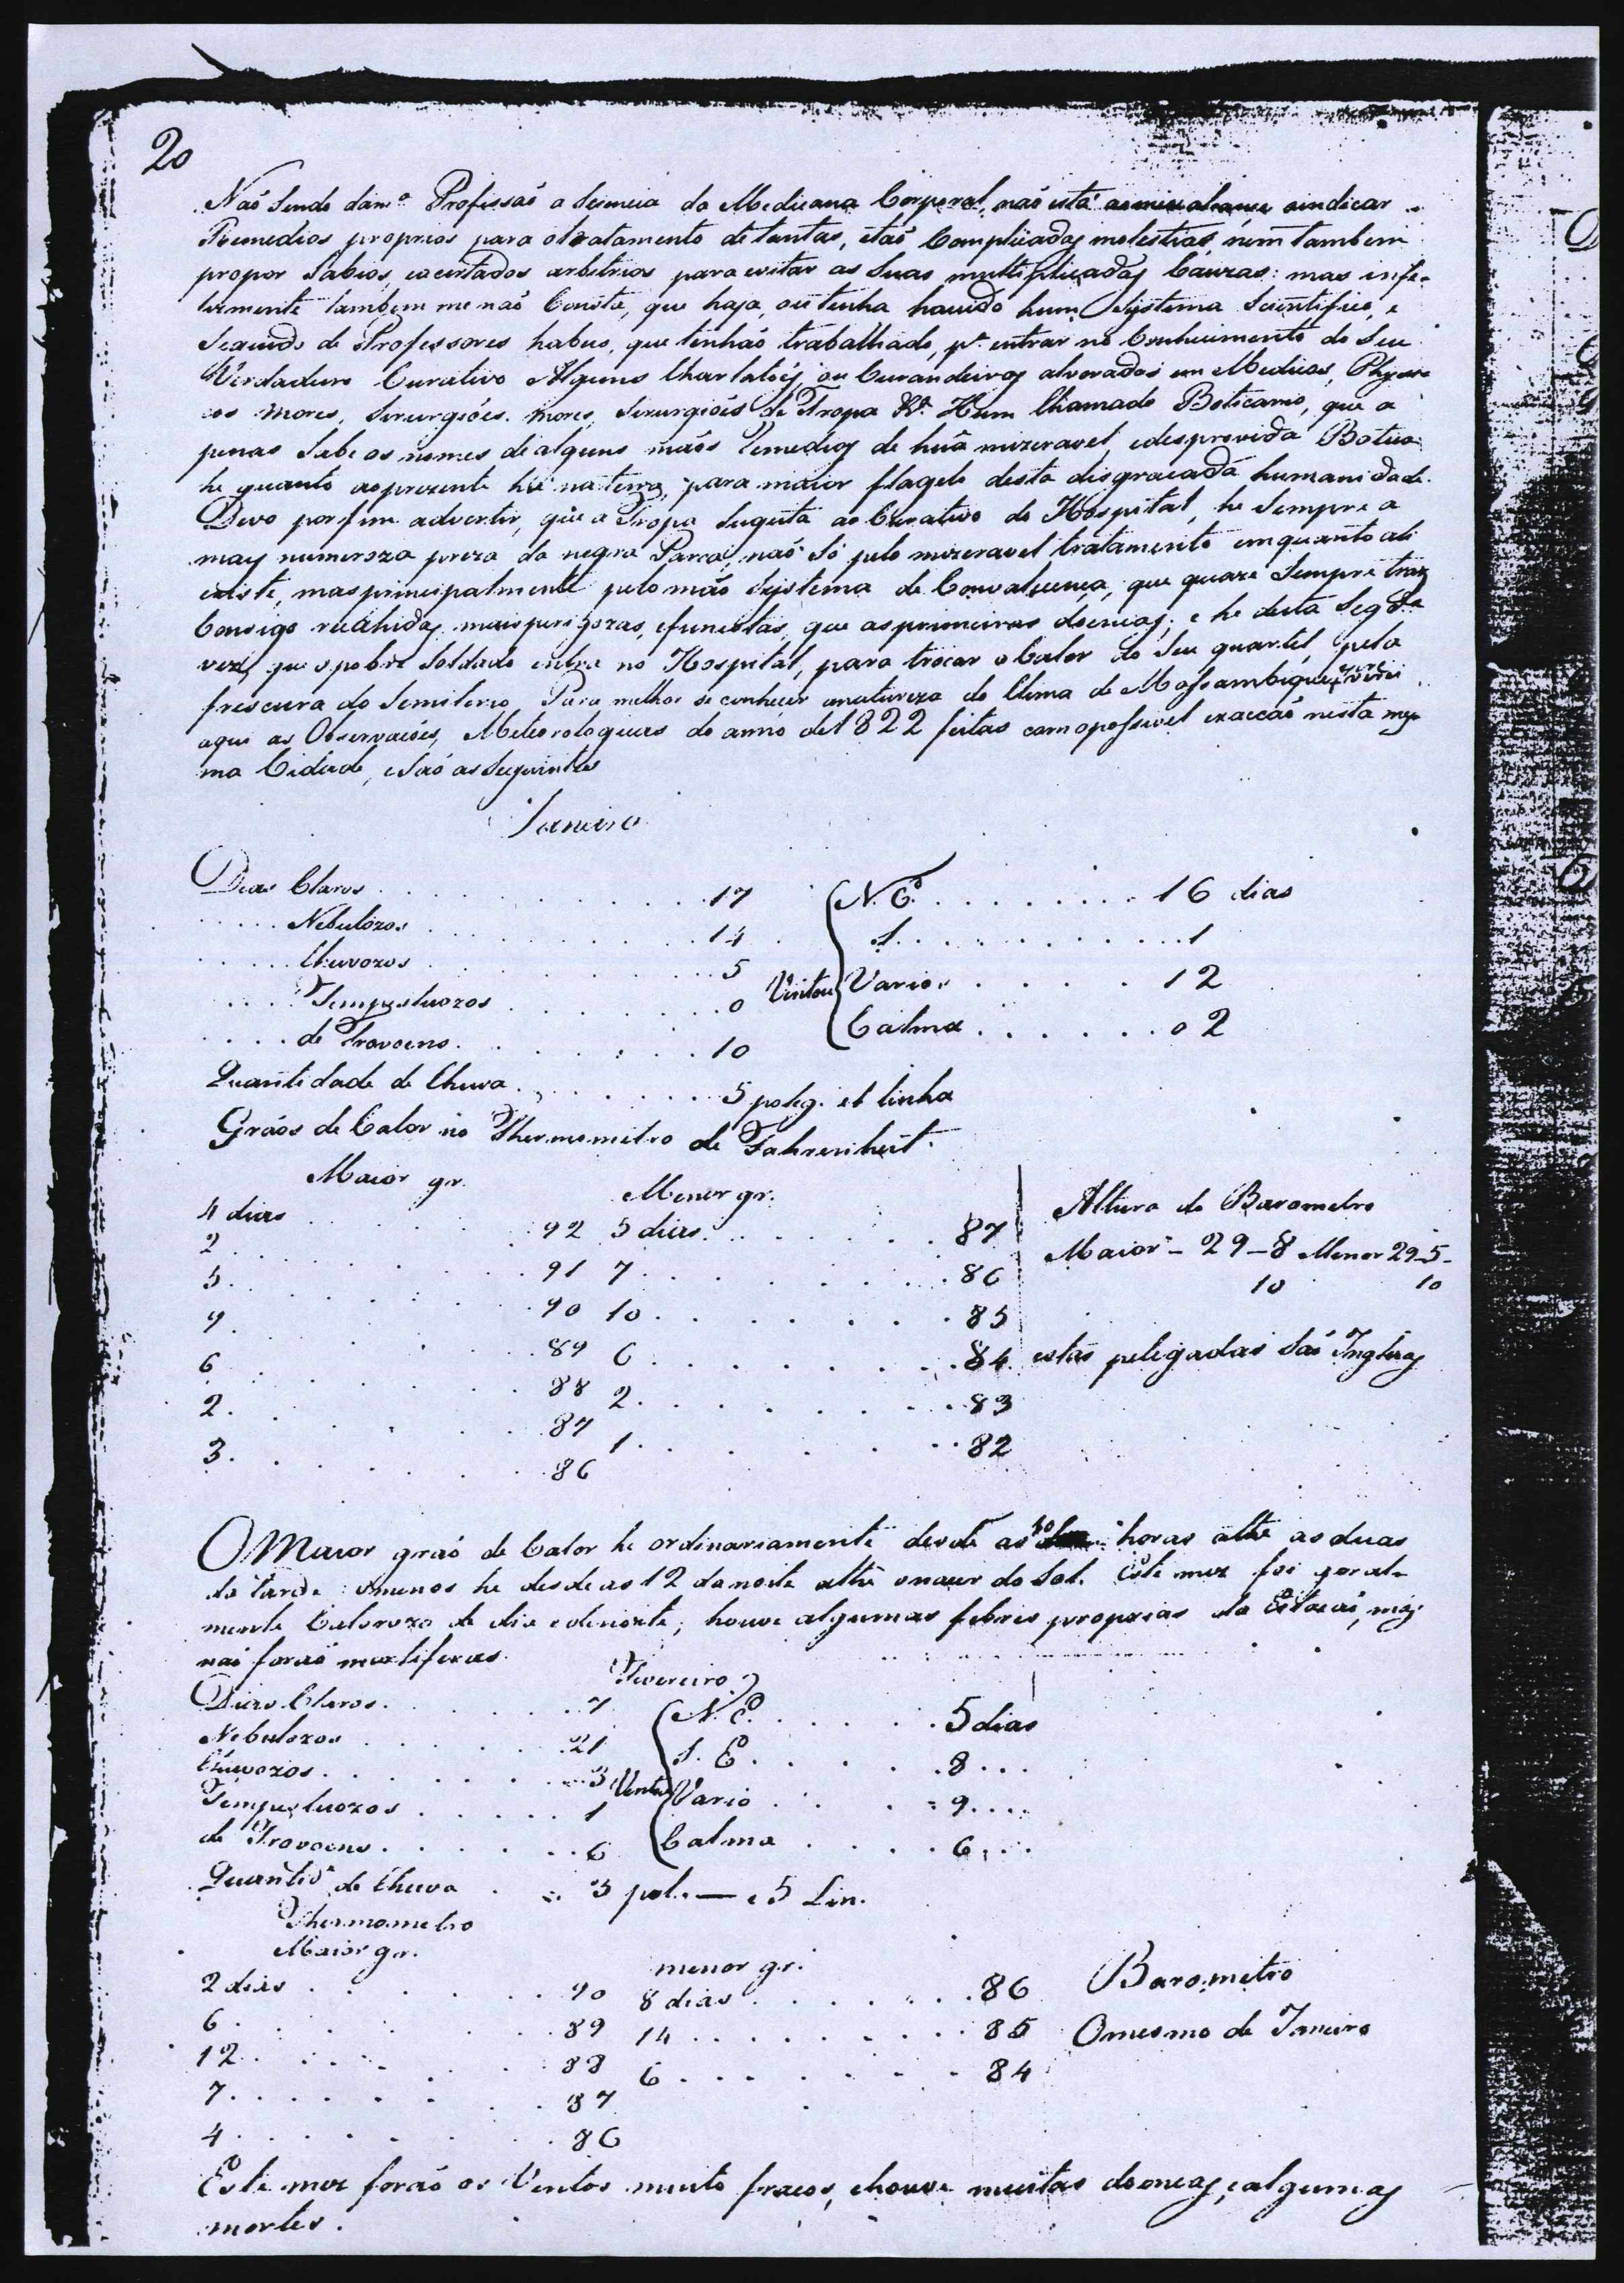 20
Naõ Sendo dam.ª Profissaõ a Sciencia da Medicana Corporal, naõ está aomeu alcance oindicar
Remedios proprios para otratamento de tantas, etaõ Complicadas molestias, nem tambem
propor Sabios, eacertados arbitrios para evitar as Suas multiplicadas Cauzas: mas infe-
lizmente tambem me naõ Consta, que haja, ou tenha havido hum Systema Scientifico, e
Seguido de Professores habeis, que tenhaõ trabalhado, p.ª entrar no Conhecimento do Seu
Verdadeiro Curativo Alguns Charlatoẽs, ou Curandeiros alvorados em Medicos, Physi-
cos Mores, Sirurgioẽs Mores, Sirurgioẽs de Tropa &.ª Hum Chamado Boticario, que a
penas Sabe os nomes dealguns máos Remedios de huã mizeravel, edesprovida Botica
he quanto aoprezente há naterra, para maior flagelo desta disgraçada humanidade.
Devo porfim advertir, que a Tropa Sugeita ao Curativo do Hospital, he Sempre a
mais numeroza preza da negra Parca, naõ Só pelo mizeravel tratamento emquanto ali
existe, mas principalmente pelo máo Systema de Convalescença, que quaze Sempre traz
Consigo recahidas mais perigozas, efunestas, que asprimeiras doenças; e he desta Seg.da
vez, que opobre Soldado entra no Hospital, para trocar oCalor do Seu quartel, pela
frescura do Semiterio. Para melhor se conhecer anatureza do Clima de Mossambique,
aqui as Observaçoẽs Meteorologicas do anno de1822 feitas com opossivel exacçaõ nesta mes-
ma Cidade, eSaõ asSeguintes
Janeiro
Dias Claros . . . . . 17 N. E. . . . . . 16 dias
. . . . Nebulozos . . . . . 14 S. . . . . . 1
. . . . Chuvozos . . . . . 5 Ventou Varios . . . . 12
. . . . Tempestuozos . . . . . 0 Calma . . . . . 02
. . . . de Trovoens . . . . . 10
Quantidade de Chuva . . . . . 5 poleg. e1 linha
Gráos de Calor no Thermometro de Fahrenheit.
Maior gr. Menor gr. Altura do Barometro
4 dias . . . . 92 5 dias . . . . 87 Maior - 29-8 Menor 29-5-
2 . . . . 91 7 . . . . 86 10 10
5 . . . . 90 10 . . . . 85
9 . . . . 89 6 . . . . 84 estas polegadas Saõ Inglezas
6 . . . . 88 2 . . . . 83
2 . . . . 87 1 . . . . 82
3 . . . . 86
OMaior gráo de Calor he ordinariamente desde as 10 horas athe as duas
da tarde: omenos he desde as 12 danoite athe onacer do Sol. Este mez foi geral-
mente Calorozo de dia edenoite; houve algumas febres proprias da Estaçaõ, mas
naõ foraõ mortiferas.
Fevereiro
Dias Claros . . . . . 7 N. E. . . . . 5 dias
Nebulozos . . . . . 21 S. E. . . . . 8 . . .
Chuvozos . . . . . 3 Ventou Vario . . . . 9 . . .
Tempestuozos . . . . . 1 Calma . . . . 6 . . .
de Trovoens . . . . . 6
Quantid.e de Chuva . . 3 pol. — e 5 Lin.
Thermometro
Maior gr. menor gr. Barometro
2 dias . . . . 90 8 dias . . . . 86
6 . . . . 89 14 . . . . 85 Omesmo de Janeiro
12 . . . . 88 6 . . . . 84
7 . . . . 87
4 . . . . 86
Este mez foraõ os Ventos muito fracos, ehouve muitas doenças, ealgumas
mortes.